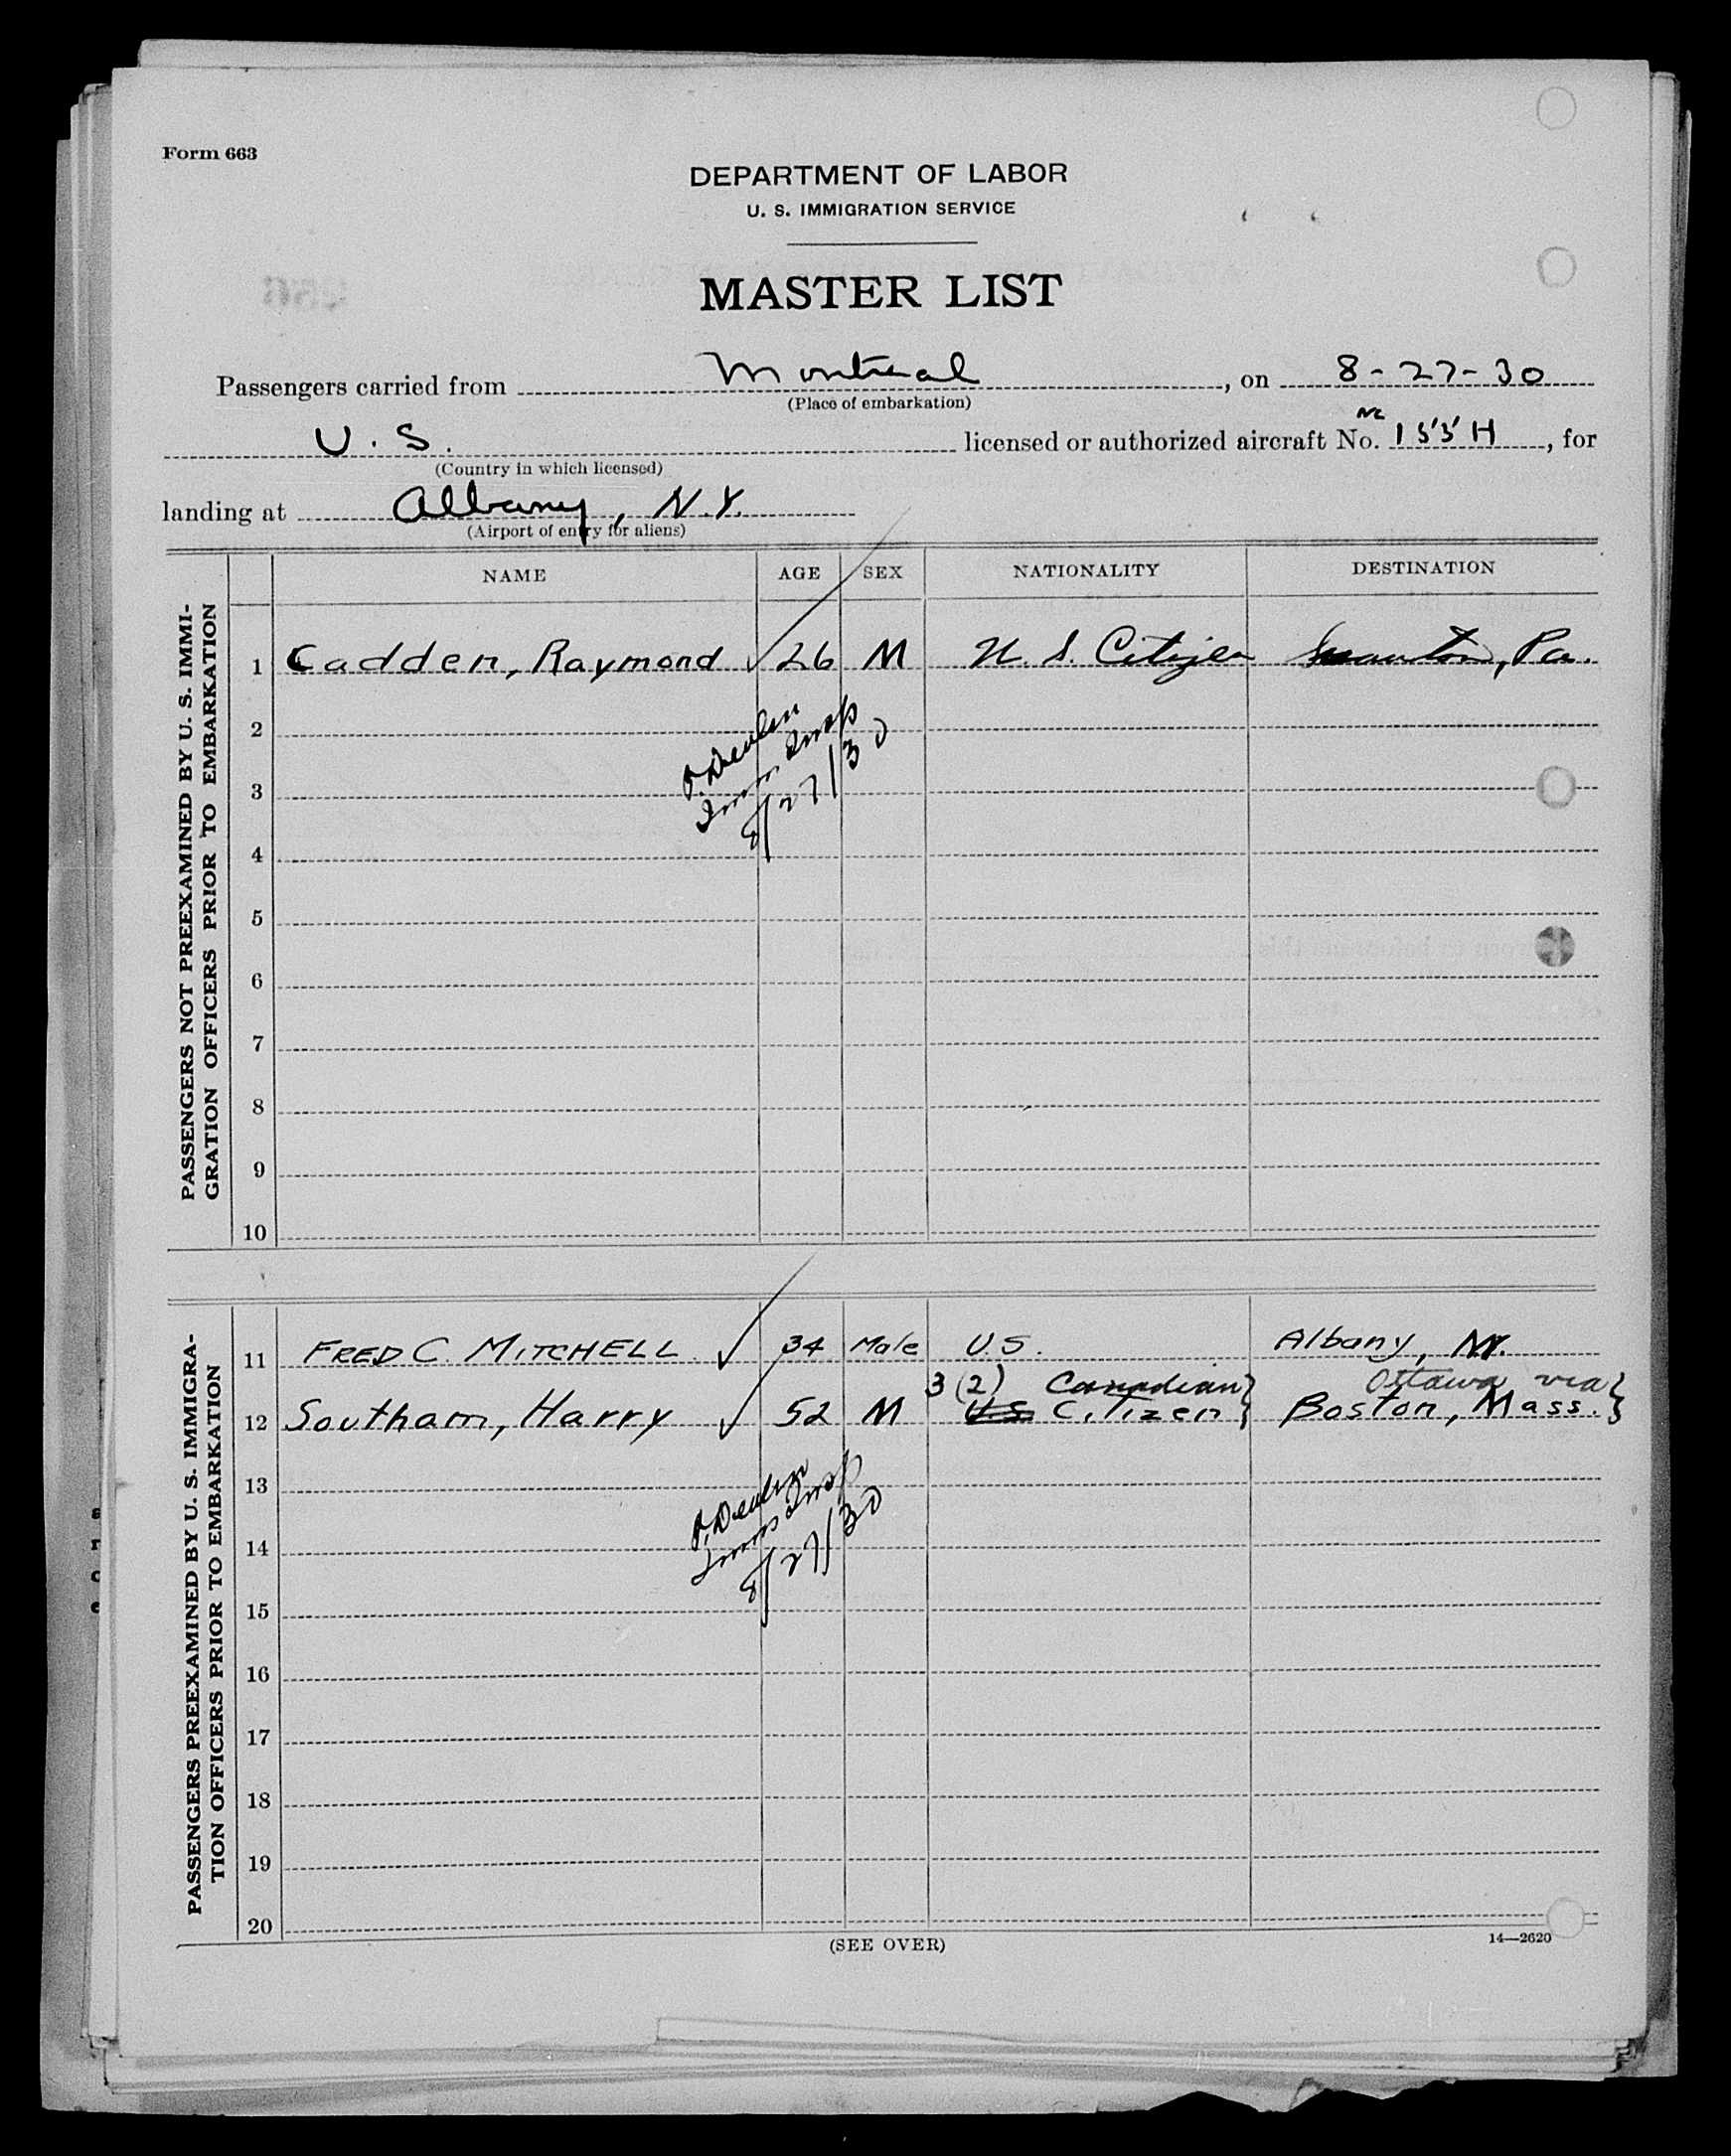 Form 663
DEPARTMENT OF LABOR
U. S. IMMIGRATION SERVICE
MASTER LIST
Passengers carried from Montreal, on 8-27-30
(Place of embarkation)
U.S. licensed or authorized aircraft No. NC 155H, for
(Country in which licensed)
landing at Albany, N.Y.
(Airport of entry for aliens)
PASSENGERS NOT PREEXAMINED BY U. S. IMMI-
GRATION OFFICERS PRIOR TO EMBARKATION
NAME AGE SEX NATIONALITY DESTINATION
1 Cadden, Raymond ✓ 26 M U. S. Citizen Scranton, Pa.
2
3
4
Devlin
Imm Insp
8/27/30
5
6
7
8
9
10
PASSENGERS PREEXAMINED BY U. S. IMMIGRA-
TION OFFICERS PRIOR TO EMBARKATION
11 FRED C. MITCHELL ✓ 34 Male U.S. Albany, NY.
3 (2) Canadian } Ottawa via }
12 Southam, Harry ✓ 52 M U.S. Citizen } Boston, Mass. }
13
14
15
Devlin
Imm Insp
8/27/30
16
17
18
19
20
(SEE OVER)
14—2620